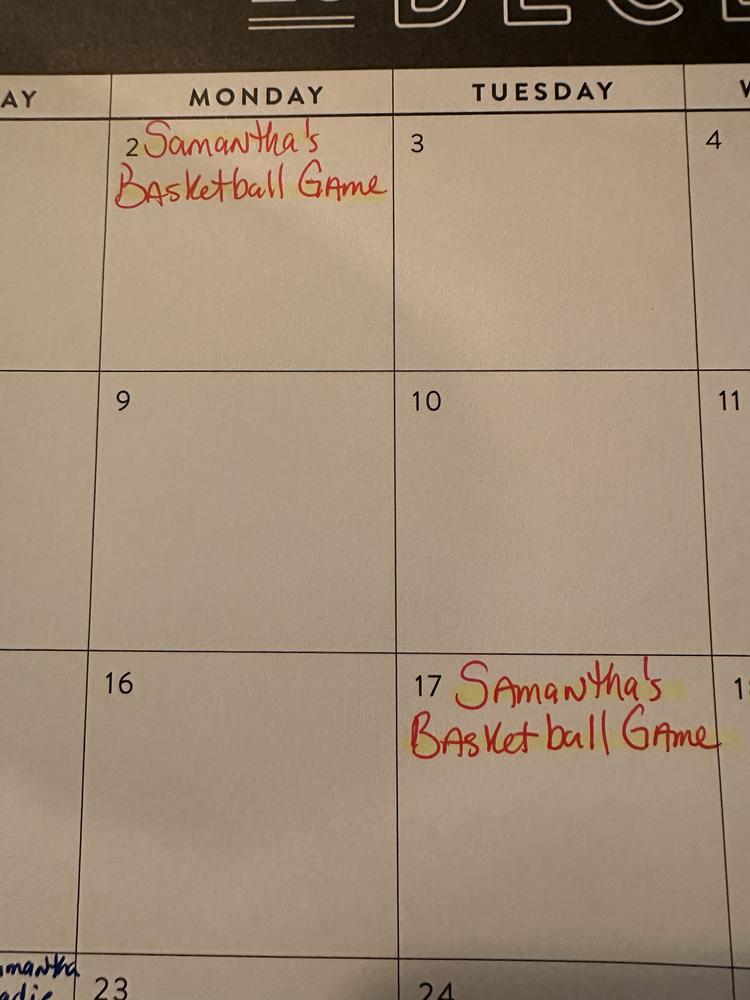 DEC
AY MONDAY TUESDAY W
2 Samantha's 3 4
Basketball Game
9 10 11
16 17 Samantha's
Basketball Game
mantha 23 24
adie